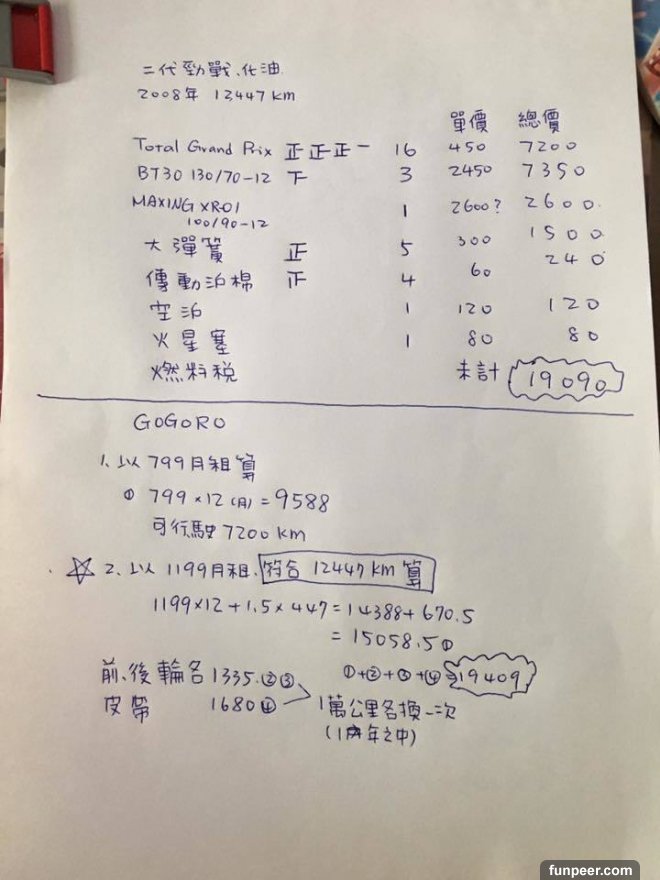 二代勁戰、化油
2008年 12447 km
單價 總價
Total Grand Prix 正正正一 16 450 7200
BT30 130/70-12 下 3 2450 7350
MAXING XR01 1 2600? 2600.
100/90-12
大彈簧 正 5 300 1500
傳動泊棉 正 4 60 240
空泊 1 120 120
火星塞 1 80 80
燃料稅 未計 19090
GOGORO
1、以799月租算
① 799×12(月)=9588
可行駛7200km
☆ 2、以1199月租、符合12447km算
1199×12+1.5×447=14388+670.5
=15058.5①
前、後輪各1335.②③ ①+②+③+④ 19409
皮帶 1680④ 1萬公里各換一次
(1年之中)
funpeer.com